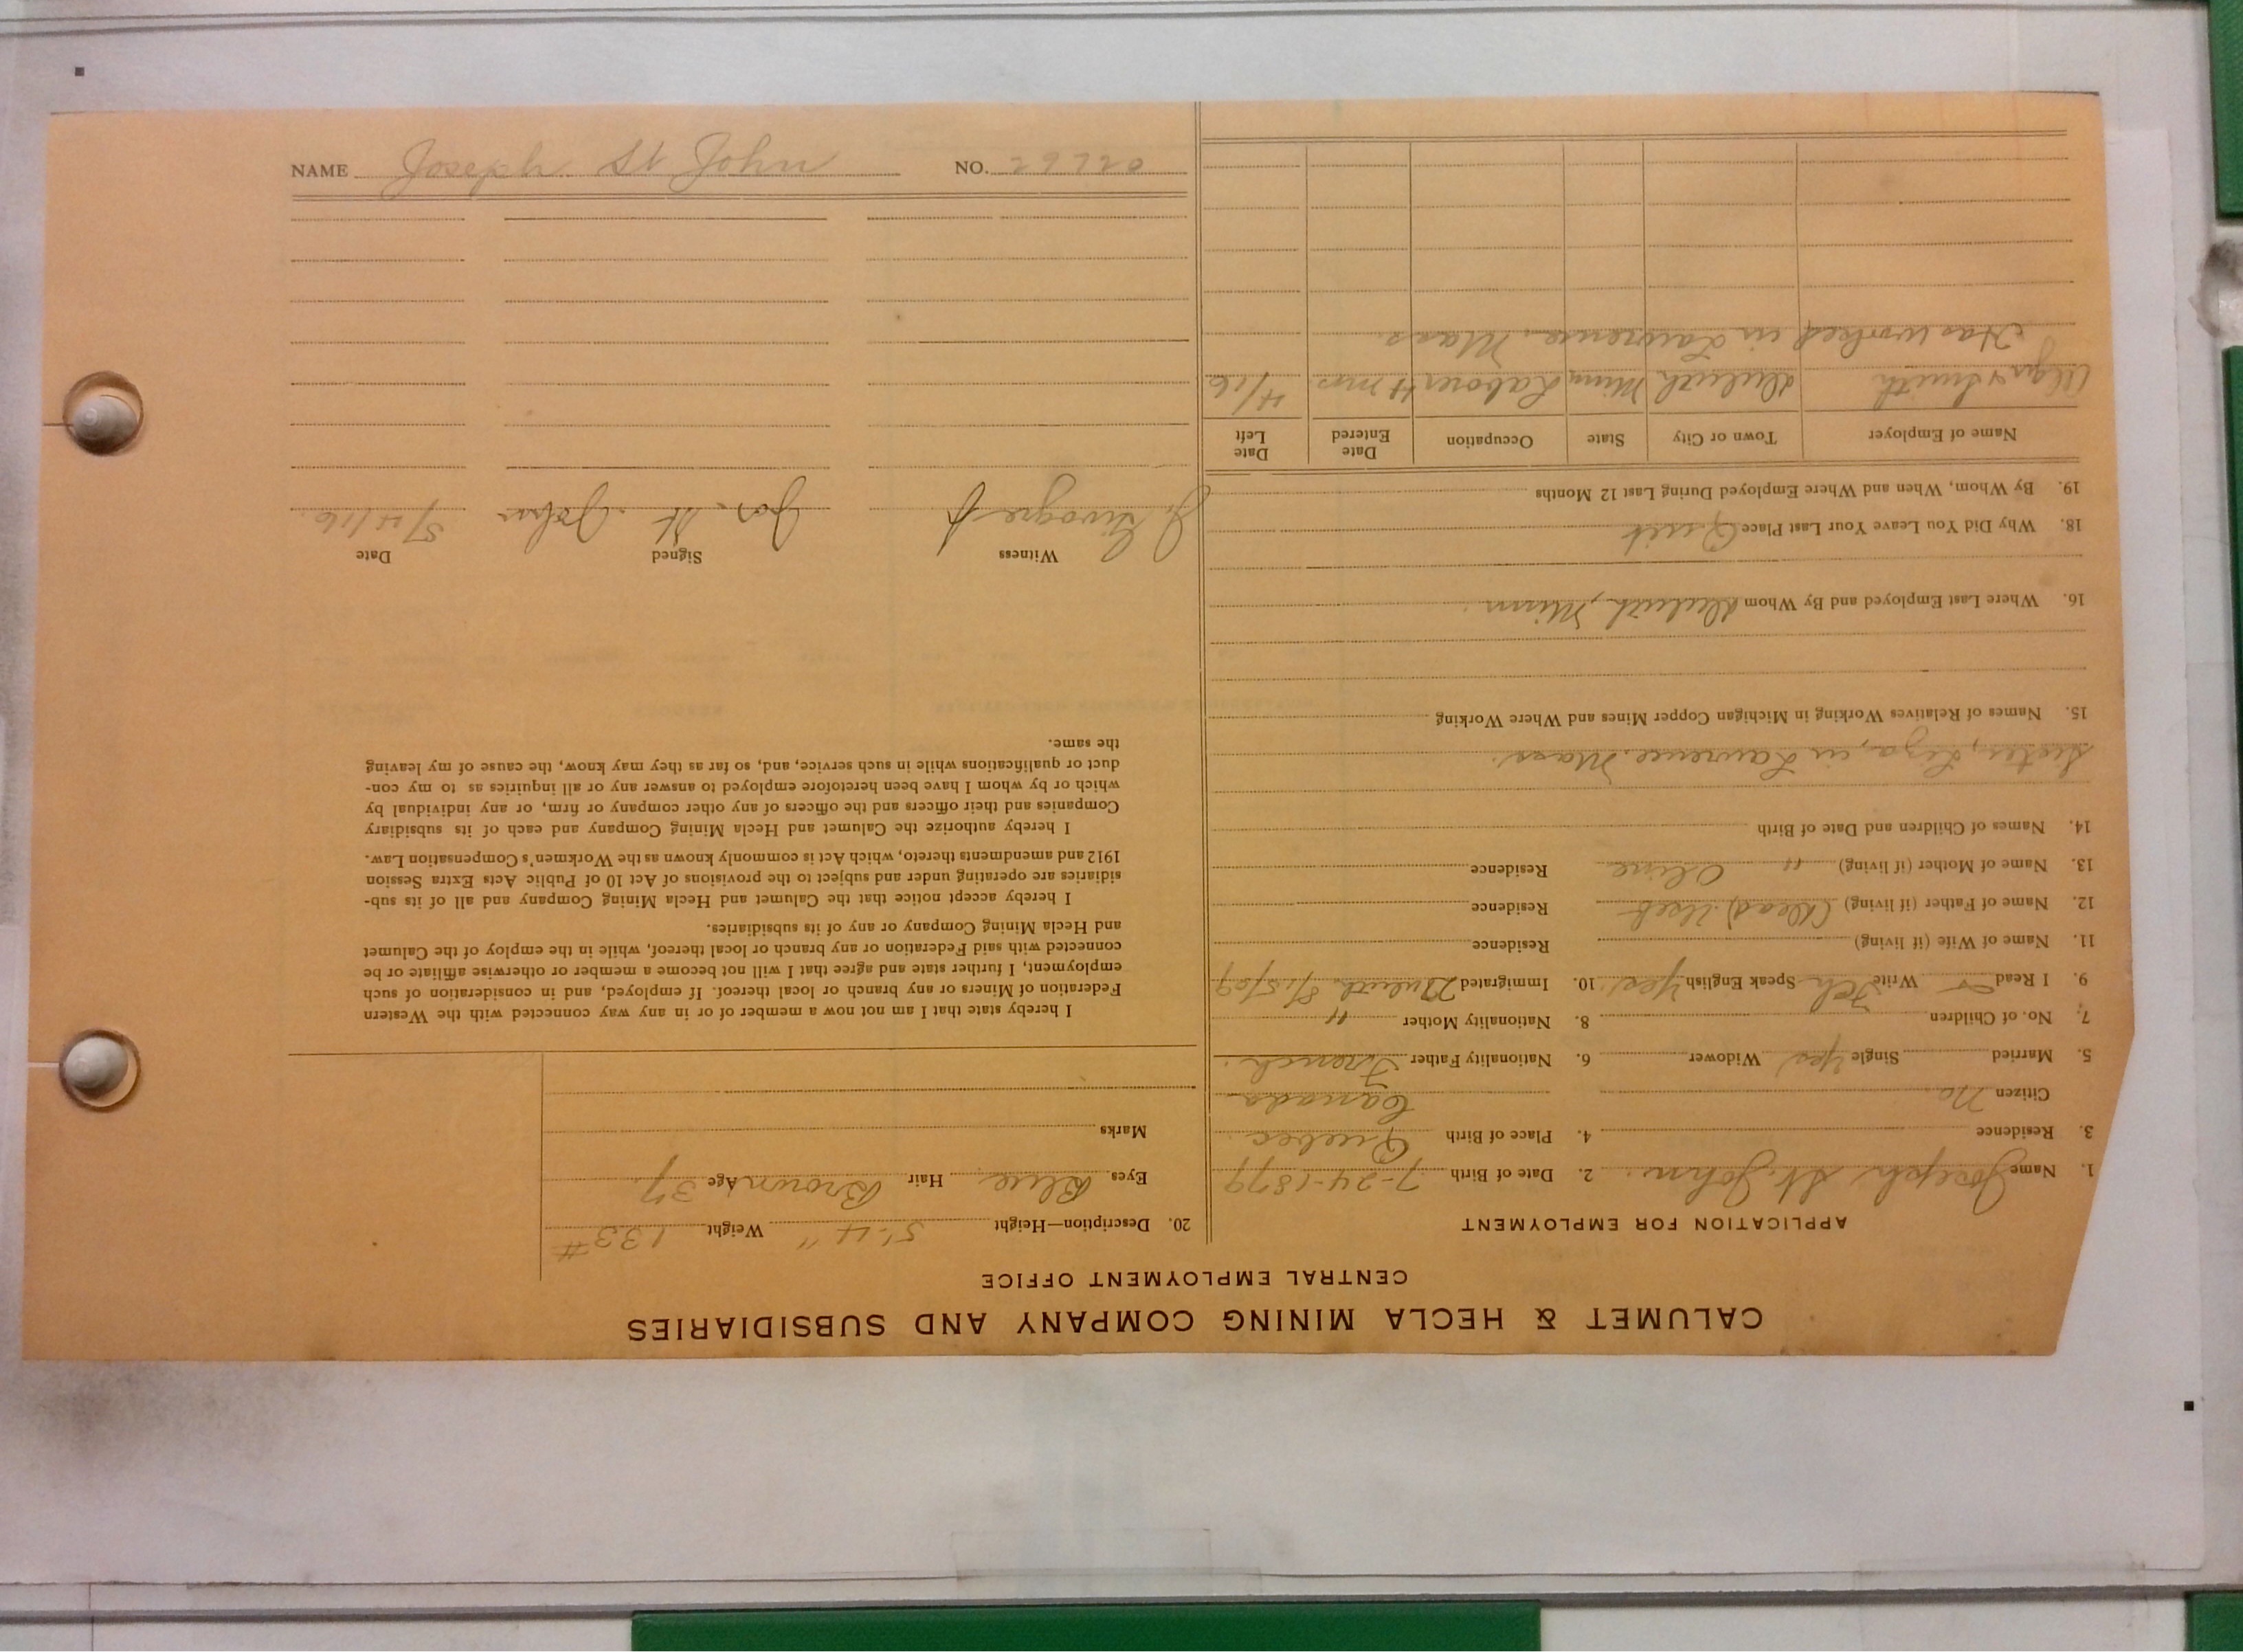 CALUMET & HECLA MINING COMPANY AND SUBSIDIARIES
CENTRAL EMPLOYMENT OFFICE
APPLICATION FOR EMPLOYMENT
1. Name Joseph St. John. 2. Date of Birth 7-24-1879
3. Residence 4. Place of Birth Quebec.
Citizen No. Canada
5. Married Single Yes Widower 6. Nationality Father French.
7. No. of Children 8. Nationality Mother "
9. I Read Write Speak English Yes 10. Immigrated Duluth 8/15/09
11. Name of Wife (if living) Residence
12. Name of Father (if living) (Dead) Residence
13. Name of Mother (if living) " Oline Residence
14. Names of Children and Date of Birth
Sister, Liza, in Lawrence. Mass.
15. Names of Relatives Working in Michigan Copper Mines and Where Working
16. Where Last Employed and By Whom Duluth, Minn.
18. Why Did You Leave Your Last Place Quit
19. By Whom, When and Where Employed During Last 12 Months
Name of Employer Town or City State Occupation Date Entered Date Left
Alger & Smith Duluth Minn Laborer 4 mos 4/16
Has worked in Lawrence, Mass.
20. Description—Height 5'.4" Weight 133#
Eyes Blue Hair Brown Age 37
Marks
I hereby state that I am not now a member of or in any way connected with the Western
Federation of Miners or any branch or local thereof. If employed, and in consideration of such
employment, I further state and agree that I will not become a member or otherwise affiliate or be
connected with said Federation or any branch or local thereof, while in the employ of the Calumet
and Hecla Mining Company or any of its subsidiaries.
I hereby accept notice that the Calumet and Hecla Mining Company and all of its sub-
sidiaries are operating under and subject to the provisions of Act 10 of Public Acts Extra Session
1912 and amendments thereto, which Act is commonly known as the Workmen's Compensation Law.
I hereby authorize the Calumet and Hecla Mining Company and each of its subsidiary
Companies and their officers and the officers of any other company or firm, or any individual by
which or by whom I have been heretofore employed to answer any or all inquiries as to my con-
duct or qualifications while in such service, and, so far as they may know, the cause of my leaving
the same.
Witness Signed Date
Jos. St. John 5/4/16.
NAME Joseph St John NO. 26220